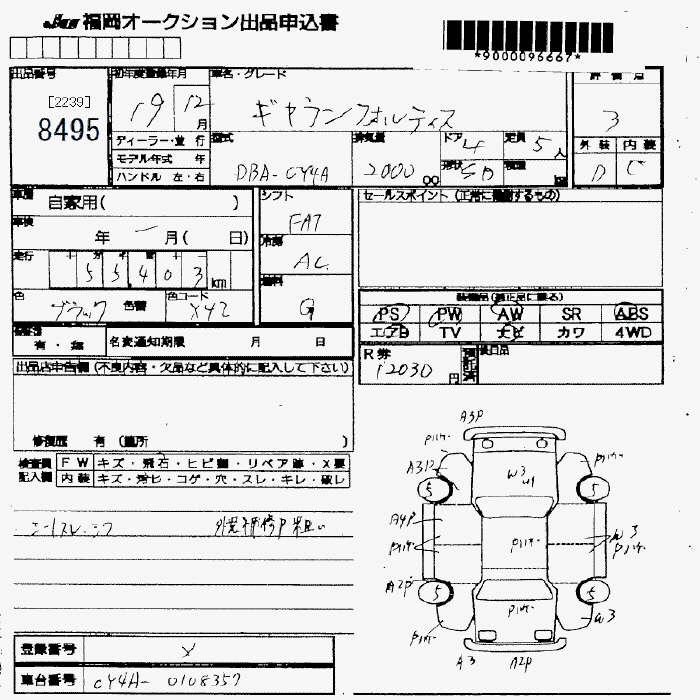 福岡オークション出品申込書
*9000096667*
出品番号
[2239]
8495
初年度登録年月
19 12月
車名・グレード
ギャランフォルティス
評価点
3
ディーラー・並行
モデル年式 年
ハンドル 左・右
型式
DBA-CY4A
排気量
2000 cc
ドア
4
形状
SD
定員
5人
積載
外装 内装
D C
車歴 自家用( )
車検 年 月( 日)
走行
十万千百
55403 km
色
ブラック 色替
色コード
X42
シフト
FAT
冷房
AC
燃料
G
セールスポイント (正常に機動するもの)
装備品(純正品に限る)
PS PW AW SR ABS
エアB TV ナビ カワ 4WD
有・無
名変通知期限 月 日
R券
12030円
預託済
後日品
出品店申告欄 (不良内容・欠品など具体的に記入して下さい)
修復歴 有 (箇所 )
検査員記入欄
FW キズ・飛石・ヒビ割・リペア跡・X要
内装 キズ・汚レ・コゲ・穴・スレ・キレ・破レ
シートスレ
A3P
A3
W3
U1
A4P
W3
A2P
W3
5 5
5 5
A3 A2P
登録番号
車台番号 CY4A-0108357